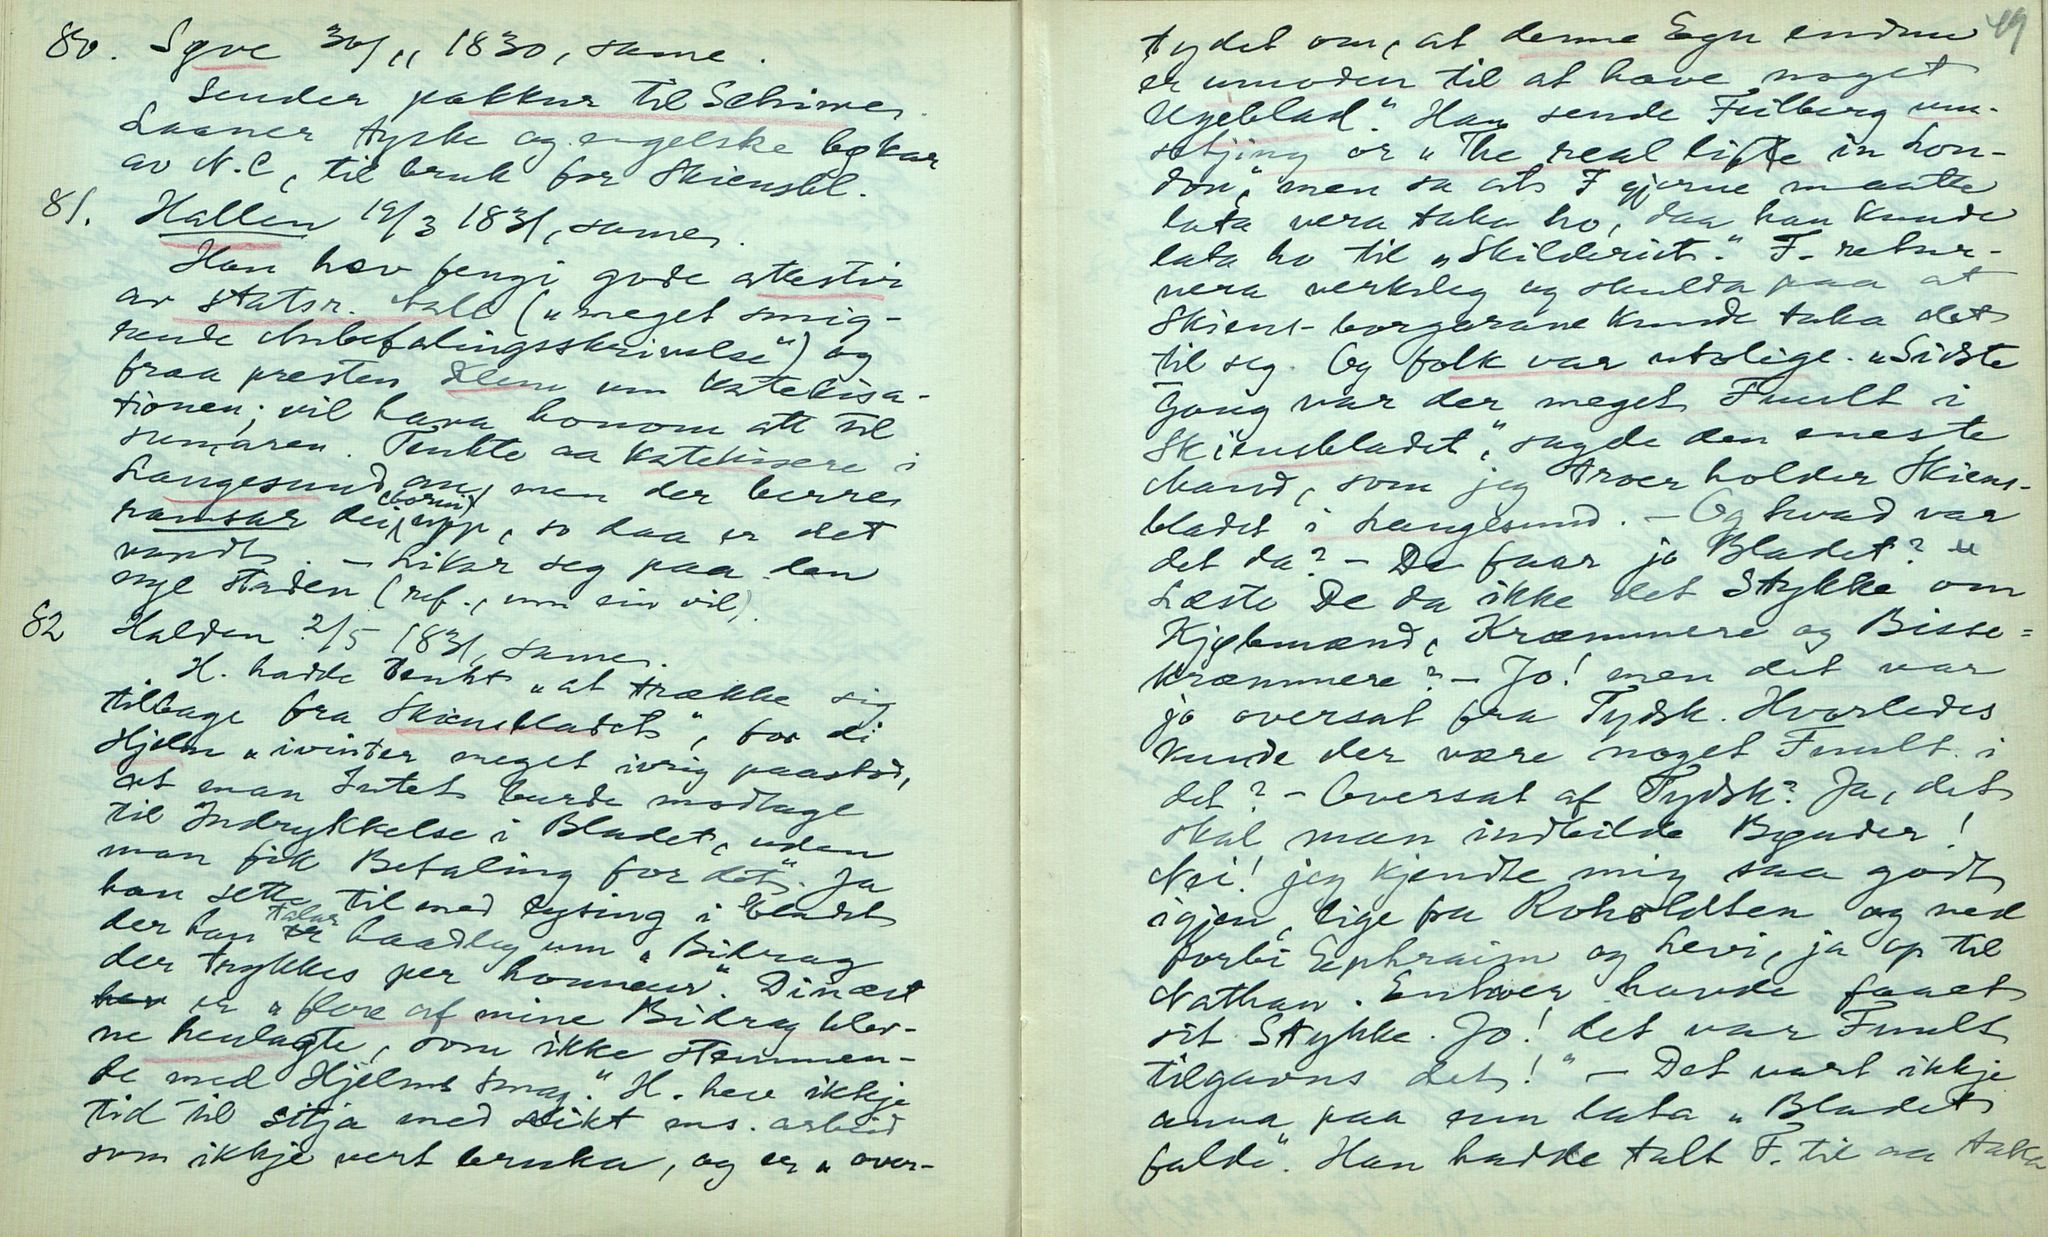 80. Syve 30/11 1830, same.
Sender pakkur til Schive.
Laaner tyske og engelske bøkar
av N.C, til bruk for Skiensbl.
81. Hallen 19/3 1831, same.
Han hev fengi gode attestir
av statsr. ("meget smig-
rende Anbefalingsskrivelse") og
fraa presten um katekisa-
tionen; vil hava honom att til
sumaren. Tenkte aa katekisere i
Langesund au, men der berre
ramsar dei (borni) upp, so daa er det
vandt. – Likar seg paa den
nye staden (ref., um ein vil).
82 Halden 2/5 1831, same.
H. hadde tenkt "at trække sig
tilbage fra Skiensbladet", for di
Hjelm "ivinter meget ivrig paastod,
at man Intet burde modtage
til Indrykkelse i Bladet, uden
man fik Betaling for det". Ja
han sette til med lysing i bladet
der han talar haadleg um "Bidrag
der trykkes per honneur". Dinæst
er "flere af mine Bidrag blev-
ne henlagte, som ikke stemmen-
de med Hjelms Smag." H. hev ikkje
tid til sitja med slikt ms. arbeid
som ikkje vert bruka, og er "over-
49
tydet om, at denne Egn endnu
er umoden til at have noget
Ugeblad." Han sende Feilberg um-
setjing or "The real life in Lon-
don", men sa at F gjerne maatte
lata vera taka ho, daa han kunde
lata ho til "Skilderiet." F. retur-
nera verkeleg og skulda paa at
Skiens-borgarane kunde taka det
til seg. Og folk var utolige. "Sidste
Gang var der meget Fuult i
Skiensbladet," sagde den eneste
Mand, som jeg troer holder Skiens-
bladet i Langesund. – Og hvad var
det da? – De faar jo Bladet? "
Læste De da ikke det Stykke om
Kjøbmænd, Kræmmere og Bisse-
kræmmere? – Jo! men det var
jo oversat fra Tydsk. Hvorledes
kunde der være noget Fuult i
det? – Oversat af Tydsk? Ja, det
skal man indbilde Bønder!
Nei! jeg kjendte mig saa godt
igjen, lige fra Roholdten og ned
forbi Ephraim og Levi, ja op til
Nathan. Enhver havde faaet
sit Stykke. Jo! det var Fuult
tilgavns det!" – Det vart ikkje
anna paa enn lata "Bladet
falde". Han hadde talt F. til aa taka